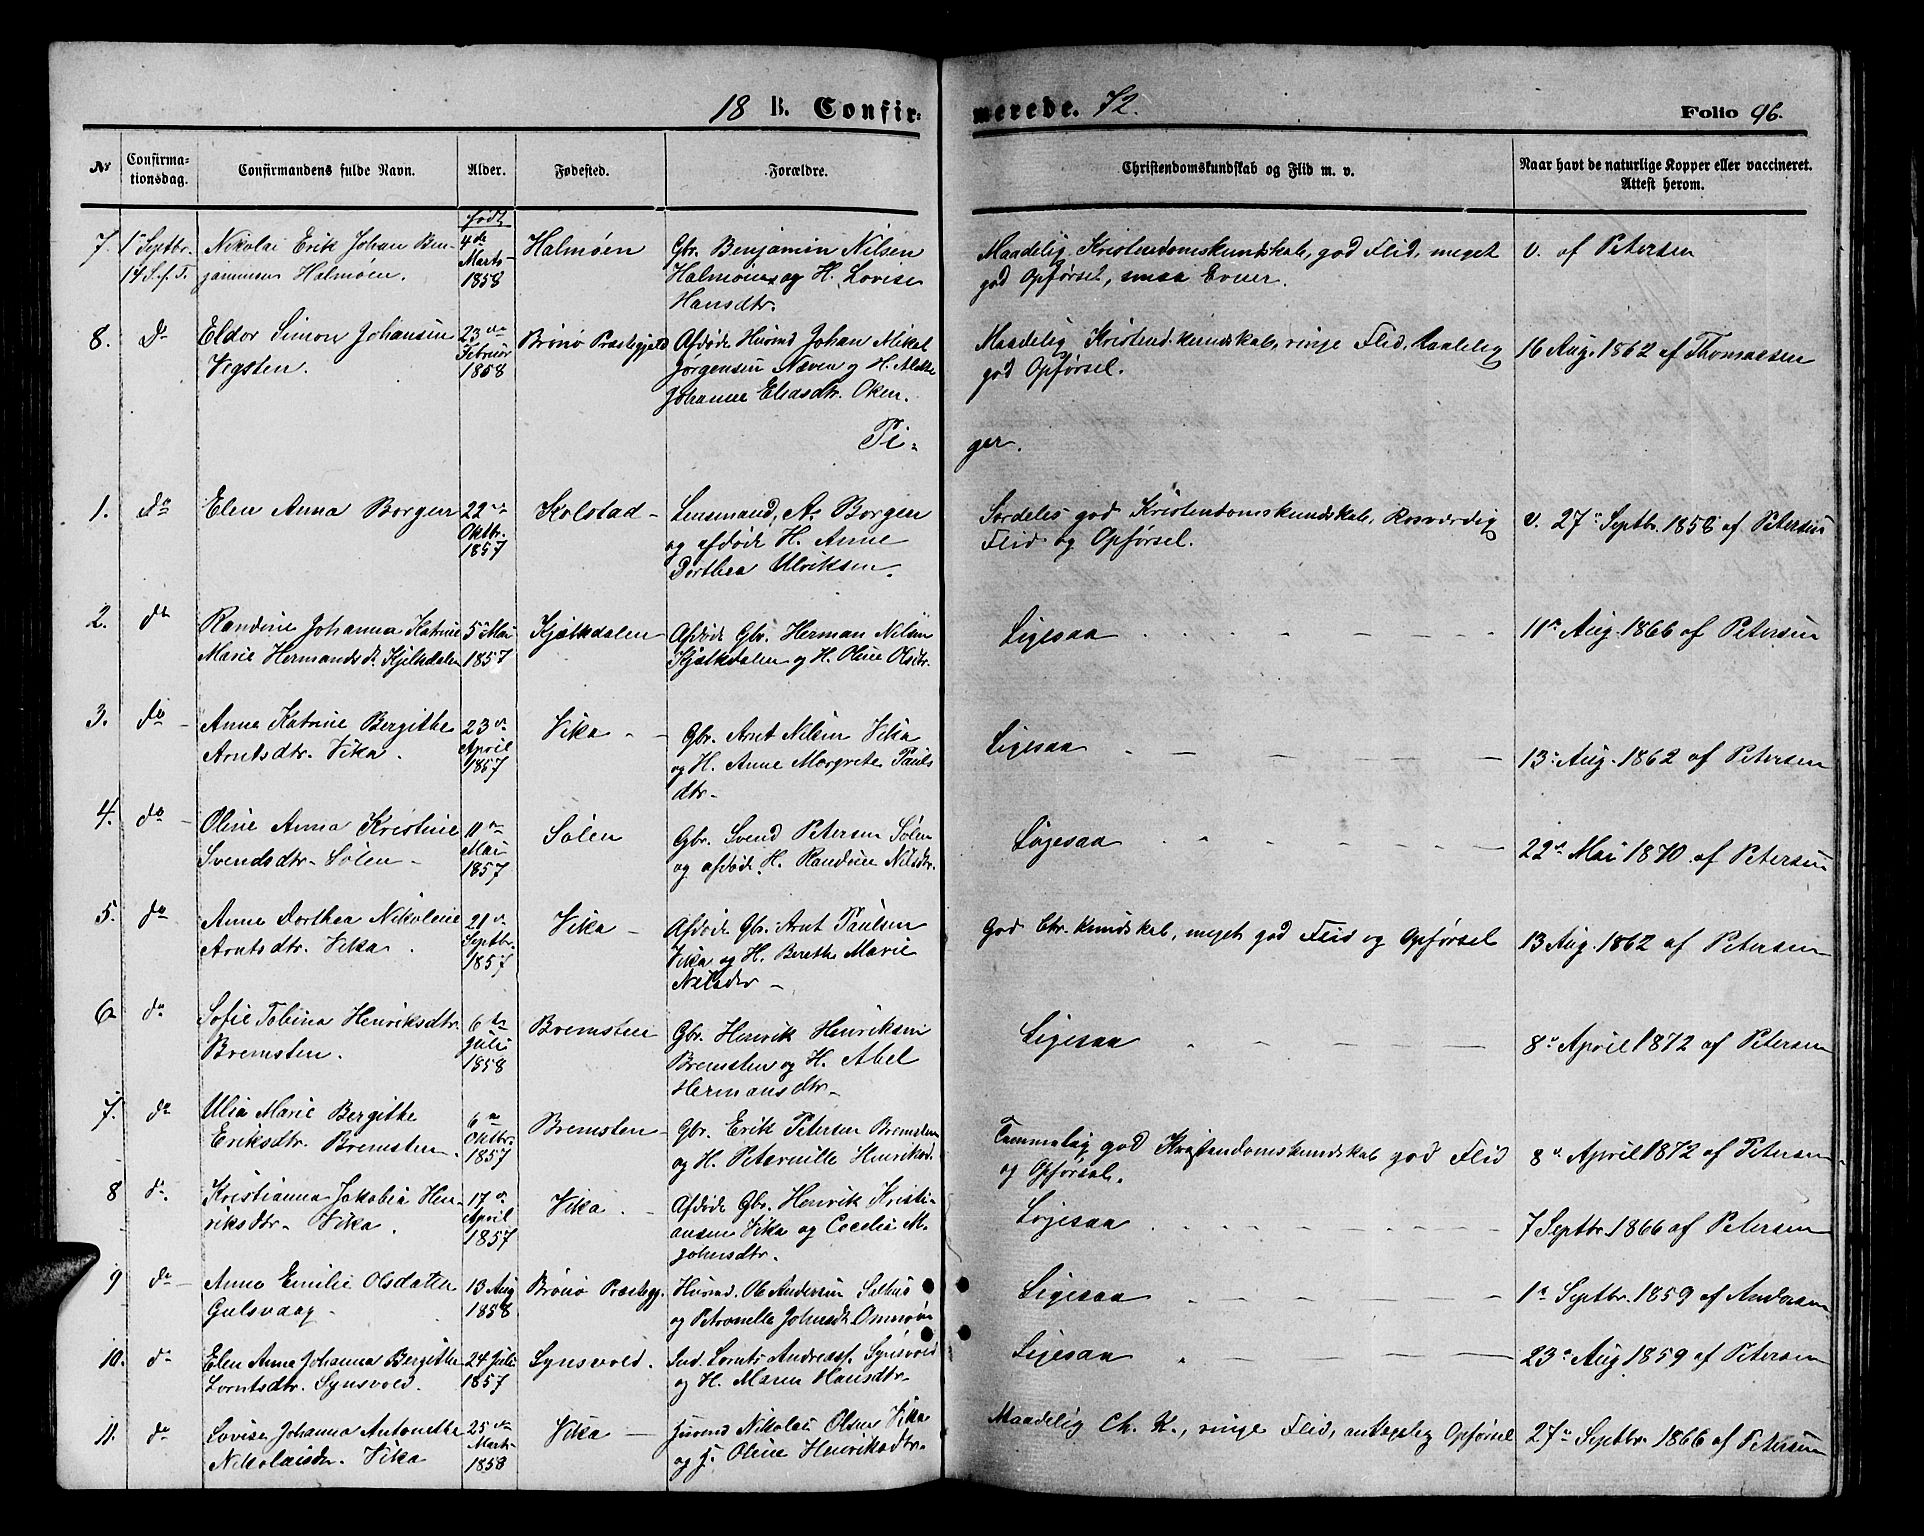 18 B. Confir- merede. 72. Folio 96.
No Confirma-tionsdag. Confirmandens fulde Navn. Alder. Fødested. Forældre. Christendomskundskab og Flid m. v. Naar havt de naturlige Kopper eller vaccineret. Attest herom.
født
7. 1 Septbr. Nikolai Erik Johan Ben- 4de Halmøen Gbr. Benjamin Nilsen Maadelig Kristendomskundskab, god Flid, meget v. af Petersen
14 S. f. T. jaminsen Halmøen. Marts 1858 Halmøen og H. Lovise god Opførsel, smaa Evner.
Hansdtr.
8. Do Eldor Simon Johansen 23de Brønø Præstegjeld Afdøde Huusmd Johan Mikal Maadelig Kristend. kundskab, ringe Flid, taalelig 16 Aug. 1862 af Thomassen
Vegsten. Februar 1858 Jørgensen Næven og H. god Opførsel.
Johanne Eliasdtr. Oken.
Pi- ger.
1. Do Elen Anna Borgen 22de Oktbr. 1857 Kolstad Lensmand, A. Borgen Særdeles god Kristendomskundskab, Rosværdig v. 27 Septbr. 1858 af Petersen
og afdøde H. Anne Flid og Opførsel.
Dorthea Ulriksen.
2. do Randine Johanna Katrine 5 Mai Kjølkdalen Afdøde Gbr. Herman Nilsen Ligesaa 11 Aug. 1866 af Petersen
Marie Hermandsd. Kjelkdalen 1857 Kjølkdalen og H. Oline Olsdtr.
3. do Anna Katrine Bergithe 23 April 1857 Vika Gbr. Arnt Nilsen Vika Ligesaa 13 Aug. 1862 af Petersen
Arntsdtr. Vika. og H. Anne Margrete Pauls
dtr
4. do Oline Anna Kristine 11 Mai 1857 Sølen Gbr. Svend Petersen Sølen Ligesaa 22 Mai 1870 af Petersen
Svendsdtr. Sølen og afdøde H. Randine Nilsdtr.
5. do Anne Dorthea Nikoline 21 Septbr. 1857 Vika Afdøde Gbr. Arnt Paulsen God Chr. kundskab, meget god Flid og Opførsel 13 Aug. 1862 af Petersen
Arntsdtr. Vika. Vika og H. Berethe Marie
Nilsdtr
6 do Sofie Tobina Henriksdtr. 6te Juli 1858 Bremsten Gbr. Henrik Henriksen Ligesaa 8 April 1872 af Petersen
Bremsten. Bremsten og H. Abel
Hermansdtr
7. do Ulia Marie Bergithe 6 Oktbr. 1857 Bremsten Gbr. Erik Petersen Bremsten Temmelig god Kristendomskundskab god Flid 8 April 1872 af Petersen
Eriksdtr. Bremsten. og H. Peternille Henriksd. og Opførsel.
8 do Kristianna Jakobia Hen- 17 April 1857 Vika Afdøde Gbr. Henrik Kristi- Ligesaa 7 Septbr. 1866 af Petersen
riksdtr. Vika. ansen Vika og Cecelie M.
Johnsdtr.
9 do Anna Emilie Olsdatter 13 Aug 1858 Brønø Præstegj. Huusmd. Ole Andersen Ligesaa 1 Septbr. 1859 af Andersen
Gulsvaag og Petronelle Johnsdt.
10. do Elen Anna Johanna Bergithe 24 Juli 1857 Synsvold. Ind. Lornts Andreass. Synsvold Ligesaa 23 Aug 1859 af Petersen
Lorntsdtr. Synsvold. og H. Maren Hansdtr
11. do Lovise Johanna Antonethe 25 Marts 1858 Vika Huusmd Nikolai Olsen Vika Maadelig Ch. K., ringe Flid, antagelig Opførsel 27 Septbr. 1866 af Petersen
Nikolaisdr. Vika og H. Oline Henriksdtr.